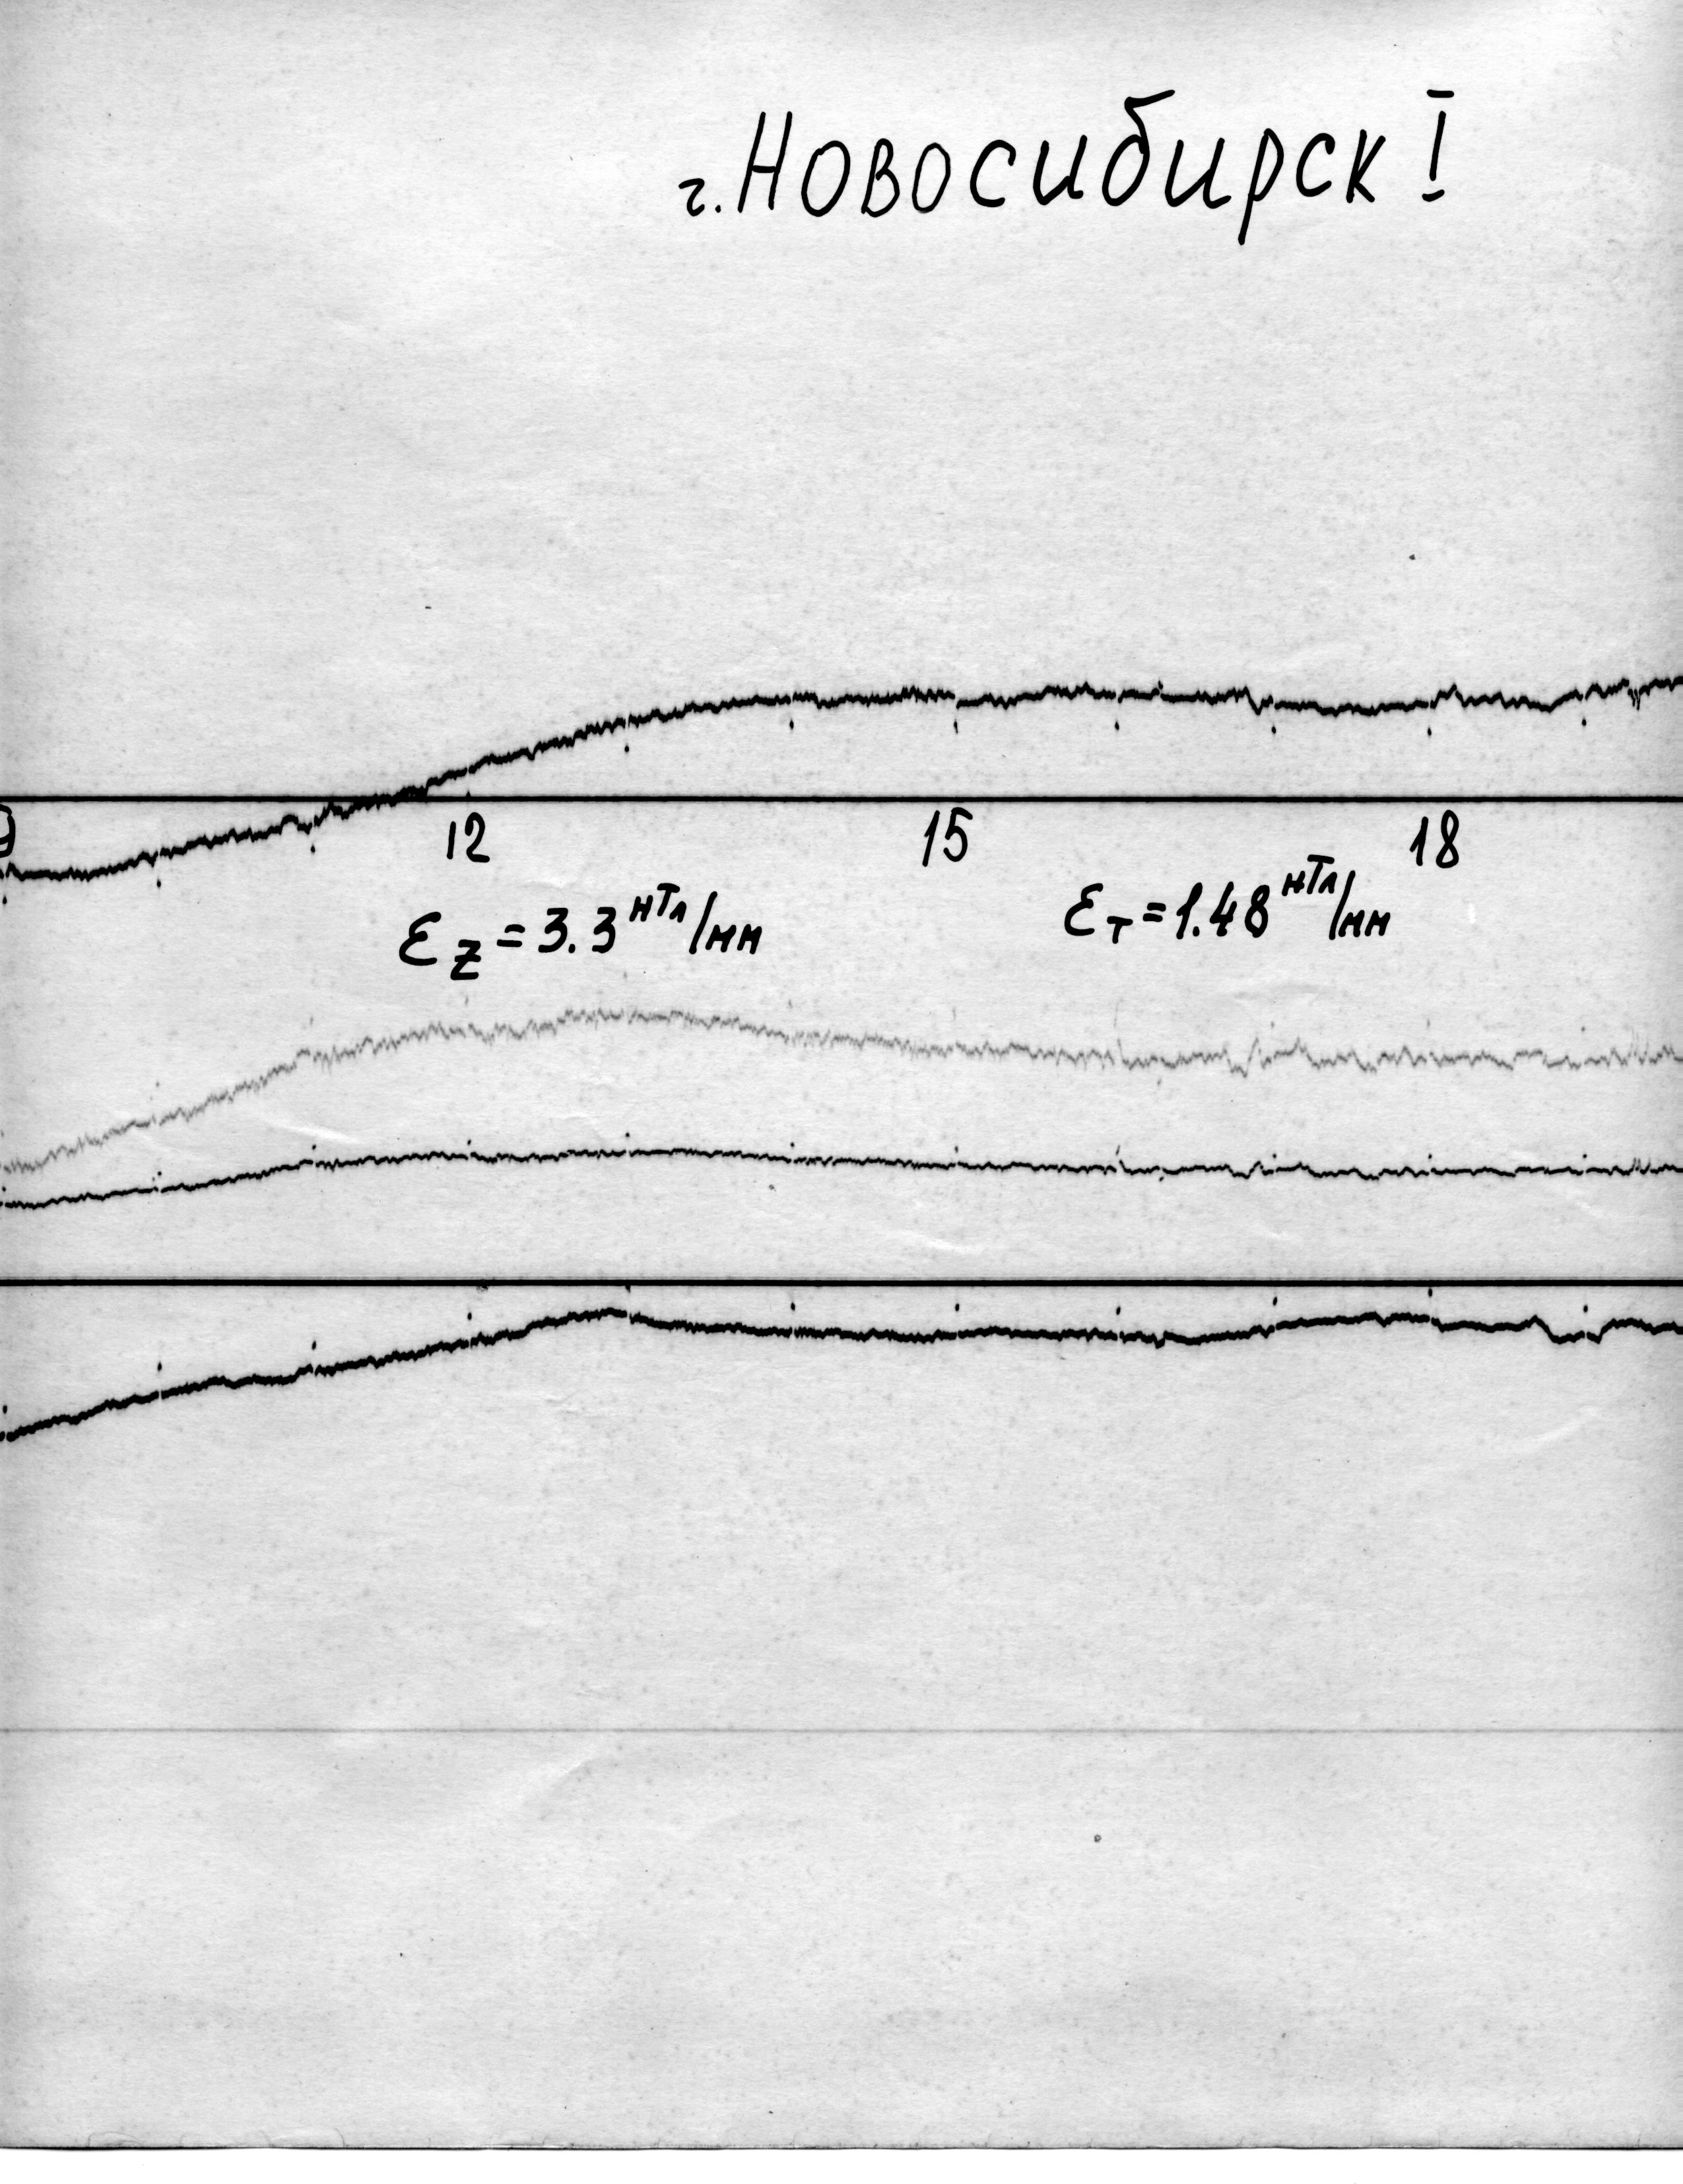 г. Новосибирск I
12 15 18
εz = 3.3 нТл/мм εт = 1.48 нТл/мм